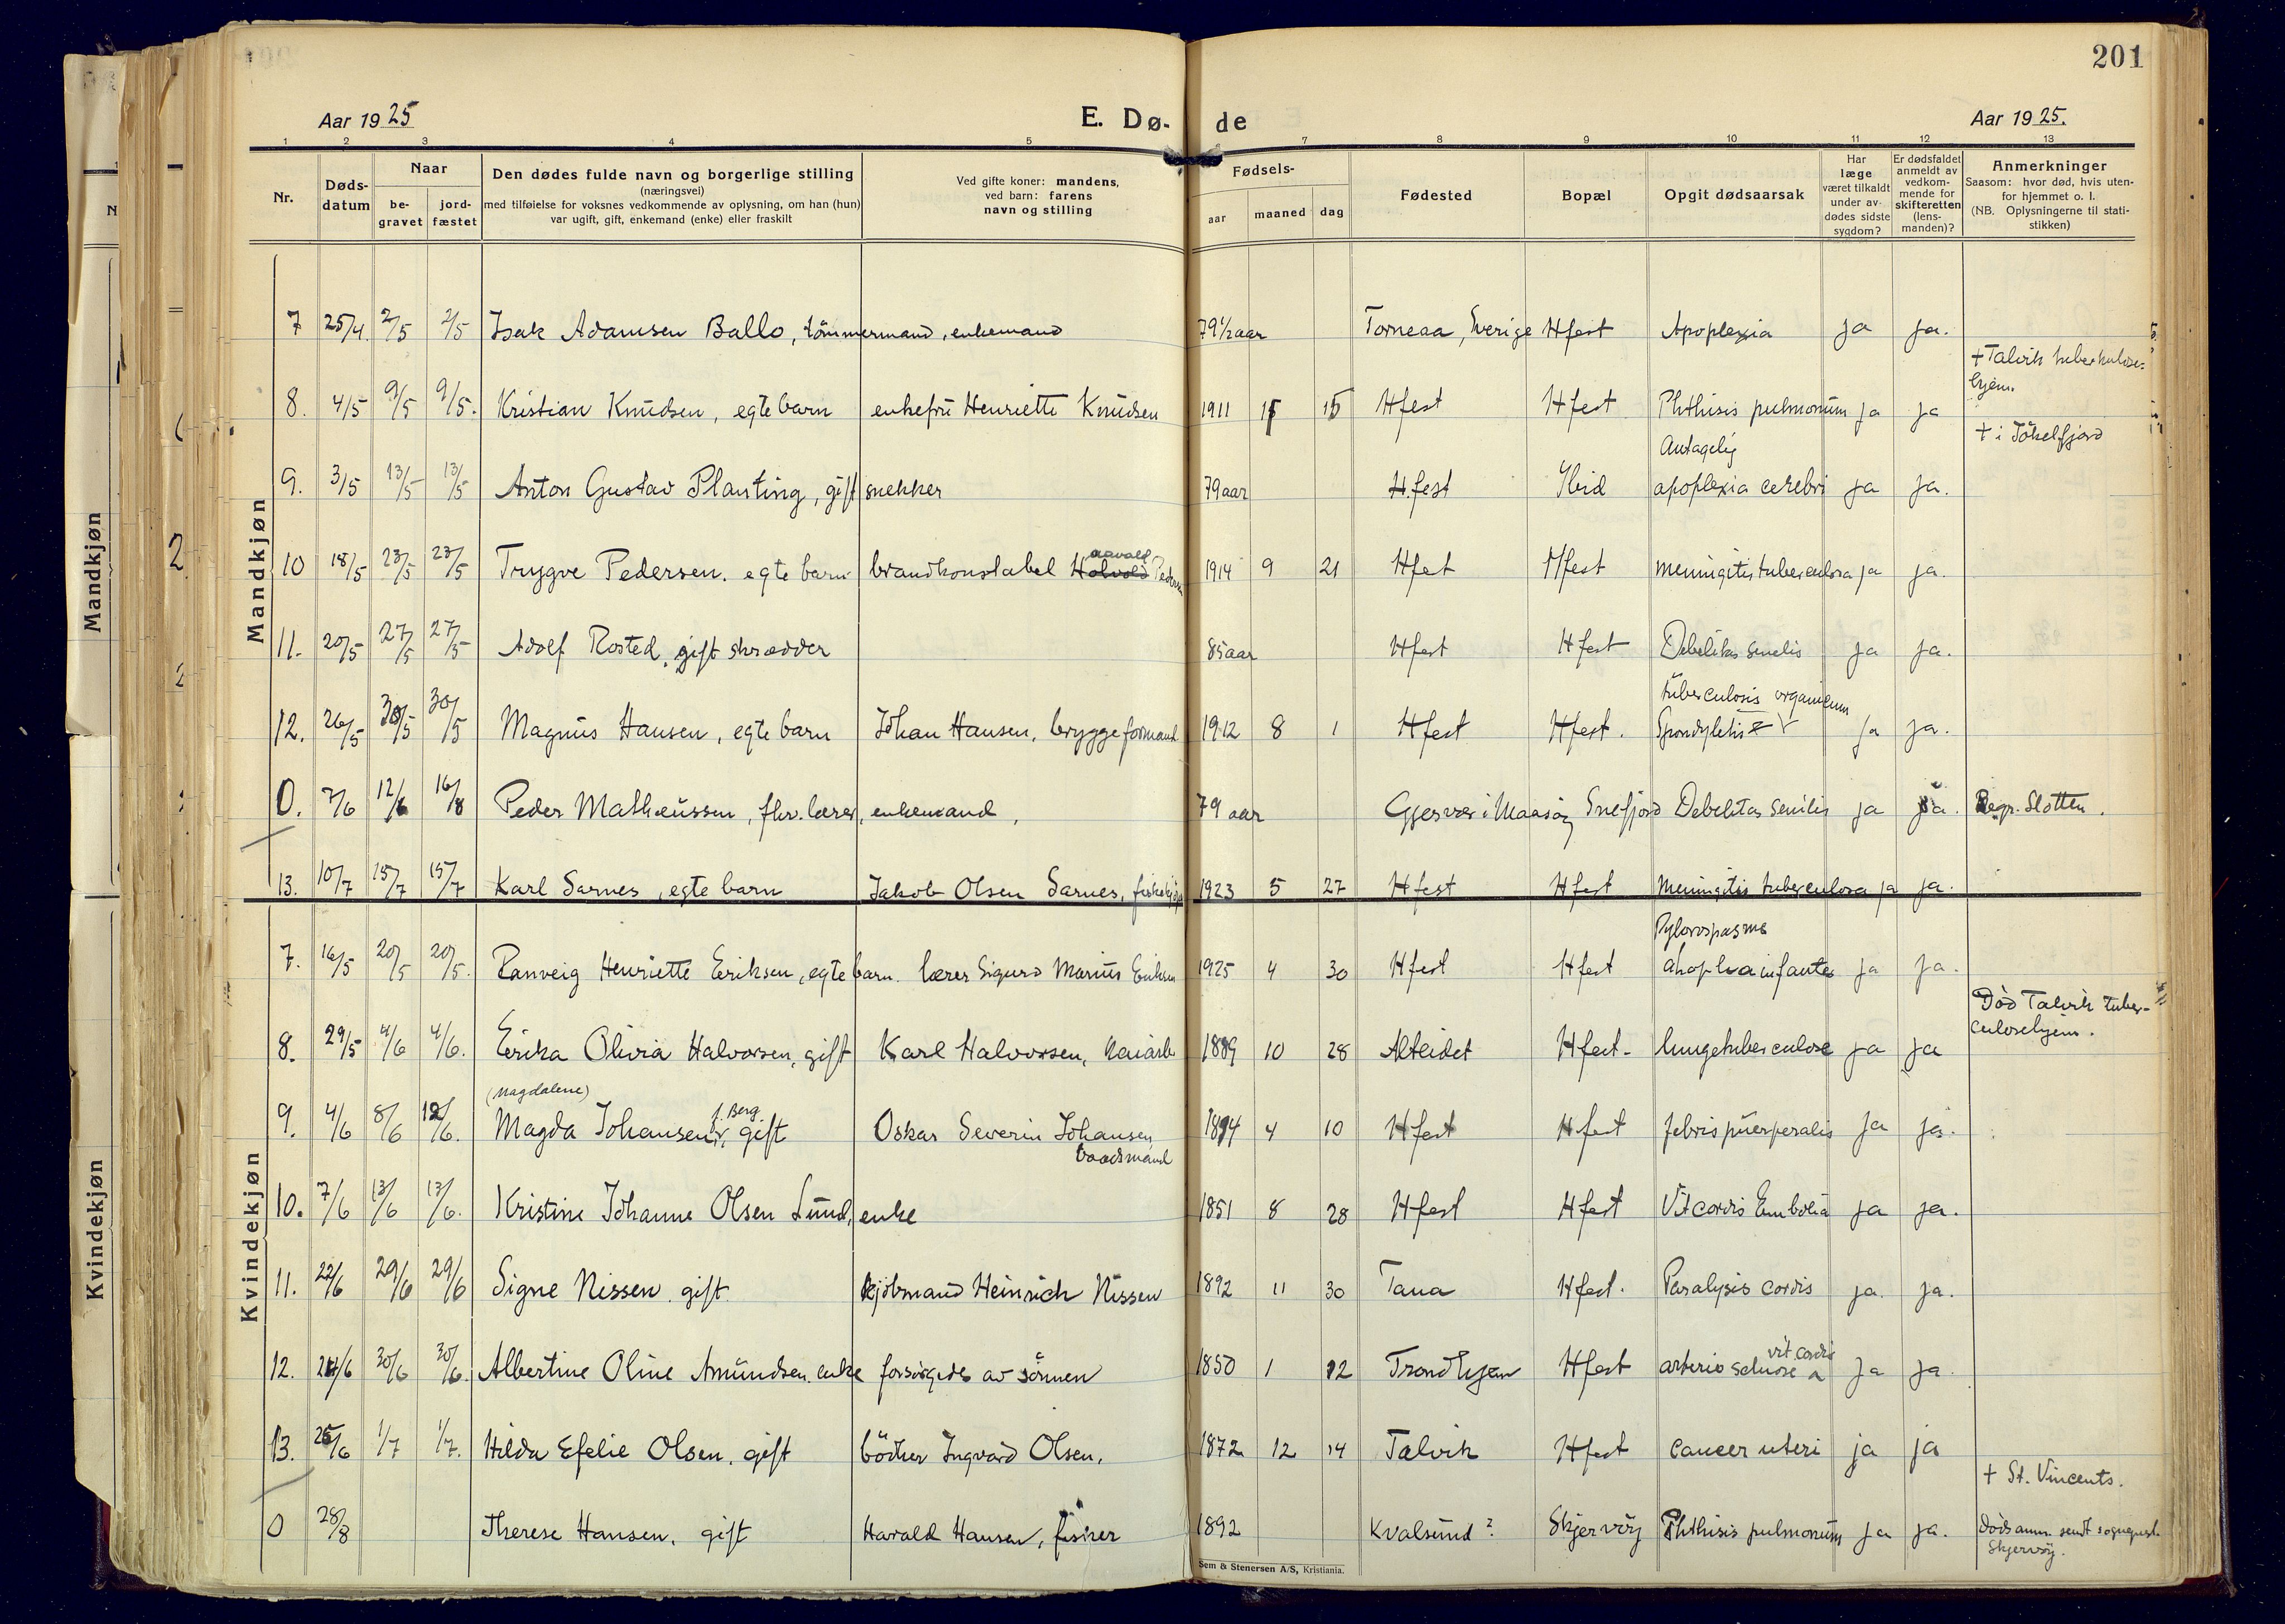 201
Aar 1925
E. Dø-
de
Aar 1925.
1 2 3 4 5 6 7 8 9 10 11 12 13
Nr.
Døds-
datum
Naar
be-
gravet
jord-
fæstet
Den dødes fulde navn og borgerlige stilling
(næringsvei)
med tilføielse for voksnes vedkommende av oplysning, om han (hun)
var ugift, gift, enkemand (enke) eller fraskilt
Ved gifte koner: mandens,
ved barn: farens
navn og stilling
Fødsels-
aar maaned dag
Fødested
Bopæl
Opgit dødsaarsak
Har
læge
været tilkaldt
under av-
dødes sidste
sygdom?
Er dødsfaldet
anmeldt av
vedkom-
mende for
skifteretten
(lens-
manden)?
Anmerkninger
Saasom: hvor død, hvis uten-
for hjemmet o. l.
(NB. Oplysningerne til stati-
stikken)
Mandkjøn
7 25/4. 2/5 2/5 Isak Adamsen Ballo, tömmermand, enkemand 79 1/2 aar Torneaa, Sverige Hfest Apoplexia ja ja.
+ Talvik tuberkulose-
hjem.
8. 4/5 9/5 9/5. Kristian Knudsen, egte barn enkefru Henriette Knudsen 1911 15 Hfest Hfest Phthisis pulmonum ja ja
+ i Jökelfjord
Antagelig
9. 3/5 13/5 13/5 Anton Gustav Planting, gift snekker 79 aar H.fest Ibid apoplexia cerebri ja ja.
aavald
10 18/5 23/5 23/5 Trygve Pedersen. egte barn brandkonstabel Holvold Pedersen 1914 9 21 Hfest Hfest meningitis tuberculosa ja ja.
11. 20/5 27/5 27/5 Adolf Rosted, gift skrædder 85 aar Hfest Hfest Debilitas senilis ja ja.
tuberculosis organicum
12. 26/5 30/5 30/5 Magnus Hansen, egte barn Johan Hansen, bryggeformand 1912 8 1 Hfest Hfest. Spondylitis ja ja.
0. 7/6 12/6 16/8 Peder Matheussen, fhv. lærer, enkemand, 79 aar Gjesvær i Maasöy Snefjord Debilitas senilis ja ja. Begr. Slotten.
13. 10/7 15/7 15/7 Karl Sarnes, egte barn Jakob Olsen Sarnes, 1923 5 27 Hfest Hfest Meningitis tuberculosa ja ja.
Kvindekjøn
Pylorospasme
7. 16/5 20/5 20/5. Ranveig Henriette Eriksen, egte barn. lærer Sigurd Marius Eriksen 1925 4 30 Hfest Hfest ja ja.
Död Talvik tuber-
culosehjem.
8. 29/5 4/6 4/6. Erika Olivia Halvorsen, gift Karl Halvorsen, kaiarb 1889 10 28 Alteidet Hfest- lungetuberculose ja ja
(Magdalene)
f. Berg
9. 4/6 8/6 12/6. Magda Johansen, gift Oskar Severin Johansen 1894 4 10 Hfest Hfest febris puerperalis ja ja.
baadsmand
10. 7/6 13/6 13/6. Kristine Johanne Olsen Lund, enke 1851 8 28 Hfest Hfest Vit cordis Embolia ja ja.
11. 22/6 29/6 29/6 Signe Nissen. gift kjöbmand Heinrich Nissen 1892 11 30 Tana Hfest. Paralysis cordis ja. ja.
vit. cordis
12. 24/6 30/6 30/6. Albertine Oline Amundsen. enke forsörgedes av sönnen 1850 1 12 Trondhjem Hfest ja ja.
13. 25/6 1/7 1/7. Hilda Efelie Olsen, gift bödker Ingvard Olsen. 1872 12 14 Talvik Hfest cancer uteri ja ja
+ St. Vincents.
0 28/8 Therese Hansen. gift Harald Hansen, fisker 1892 Kvalsund? Skjervöy Phthisis pulmonum ja ja. Dödsanm. sendt sogneprest
Skjervöy.
Sem & Stenersen A/S, Kristiania.
Mandkjøn
Kvindekjøn